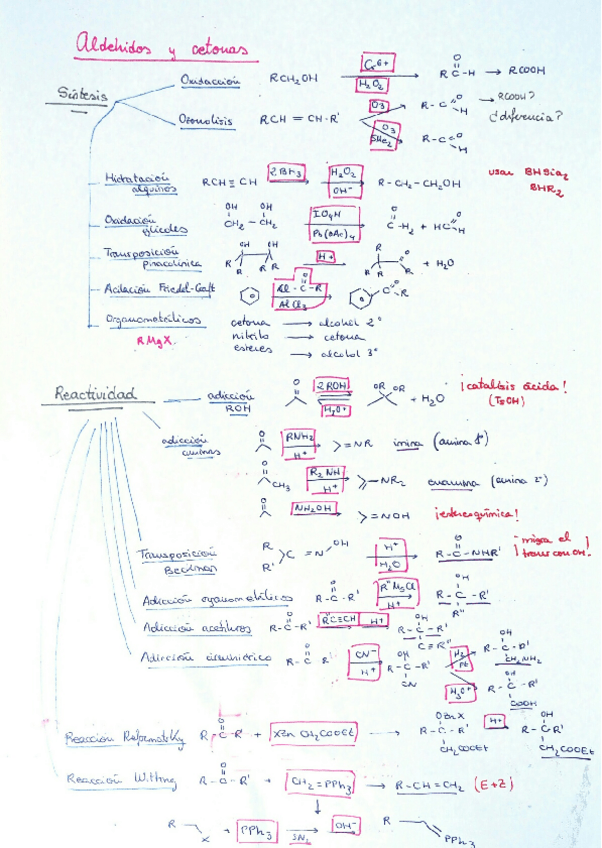 Aldehidos y cetonas
Síntesis
Oxidación RCH2OH Cr6+ H2O2 R-C-H → RCOOH
O
Ozonolisis RCH = CH-R' O3 R-C O H → RCOOH?
¿diferencia?
O3 SMe2 R-C O H
Hidratación alquinos RCH ≡ CH 2BH3 H2O2 OH- R-CH2-CH2OH usar BHSia2
BHR2
Oxidación glicoles OH OH CH2-CH2 IO4H Pb(OAc)4 O C-H2 + HC O H
Transposición pinacolínica OH OH R R R R H+ R R R O R + H2O
Acilación Friedel-Craft O Cl-C-R AlCl3 C O R
Organometálicos cetona → alcohol 2º
RMgX. nitrilo → cetona
esteres → alcohol 3º
Reactividad
adicción ROH O 2ROH H3O+ OR OR + H2O ¡catálisis ácida!
(TsOH)
adicción aminas O RNH2 H+ =NR imina (amina 1ª)
O CH3 R2NH H+ -NR2 enamina (amina 2ª)
O NH2OH =NOH
Transposición Beckman R R' C = N OH H+ H2O O R-C-NHR' ¡migra el trans con OH!
Adicción organometálicos O R-C-R' R''MgCl H+ OH R-C-R' R''
Adicción acetiluros O R-C-R' R''C≡CH H+ OH R-C-R' C≡R''
Adicción cianhídrico O R-C-R' CN- H+ OH R-C-R' CN H2 Pt OH R-C-R' CH2NH2
H3O+ OH R-C-R' COOH
Reacción Reformatsky O R-C-R' + XZn CH2COOEt → OZnX R-C-R' CH2COOEt H+ OH R-C-R' CH2COOEt
Reacción Witting O R-C-R' + CH2=PPh3 → R-CH=CH2 (E+Z)
R X + PPh3 SN2 → OH- → R PPh3